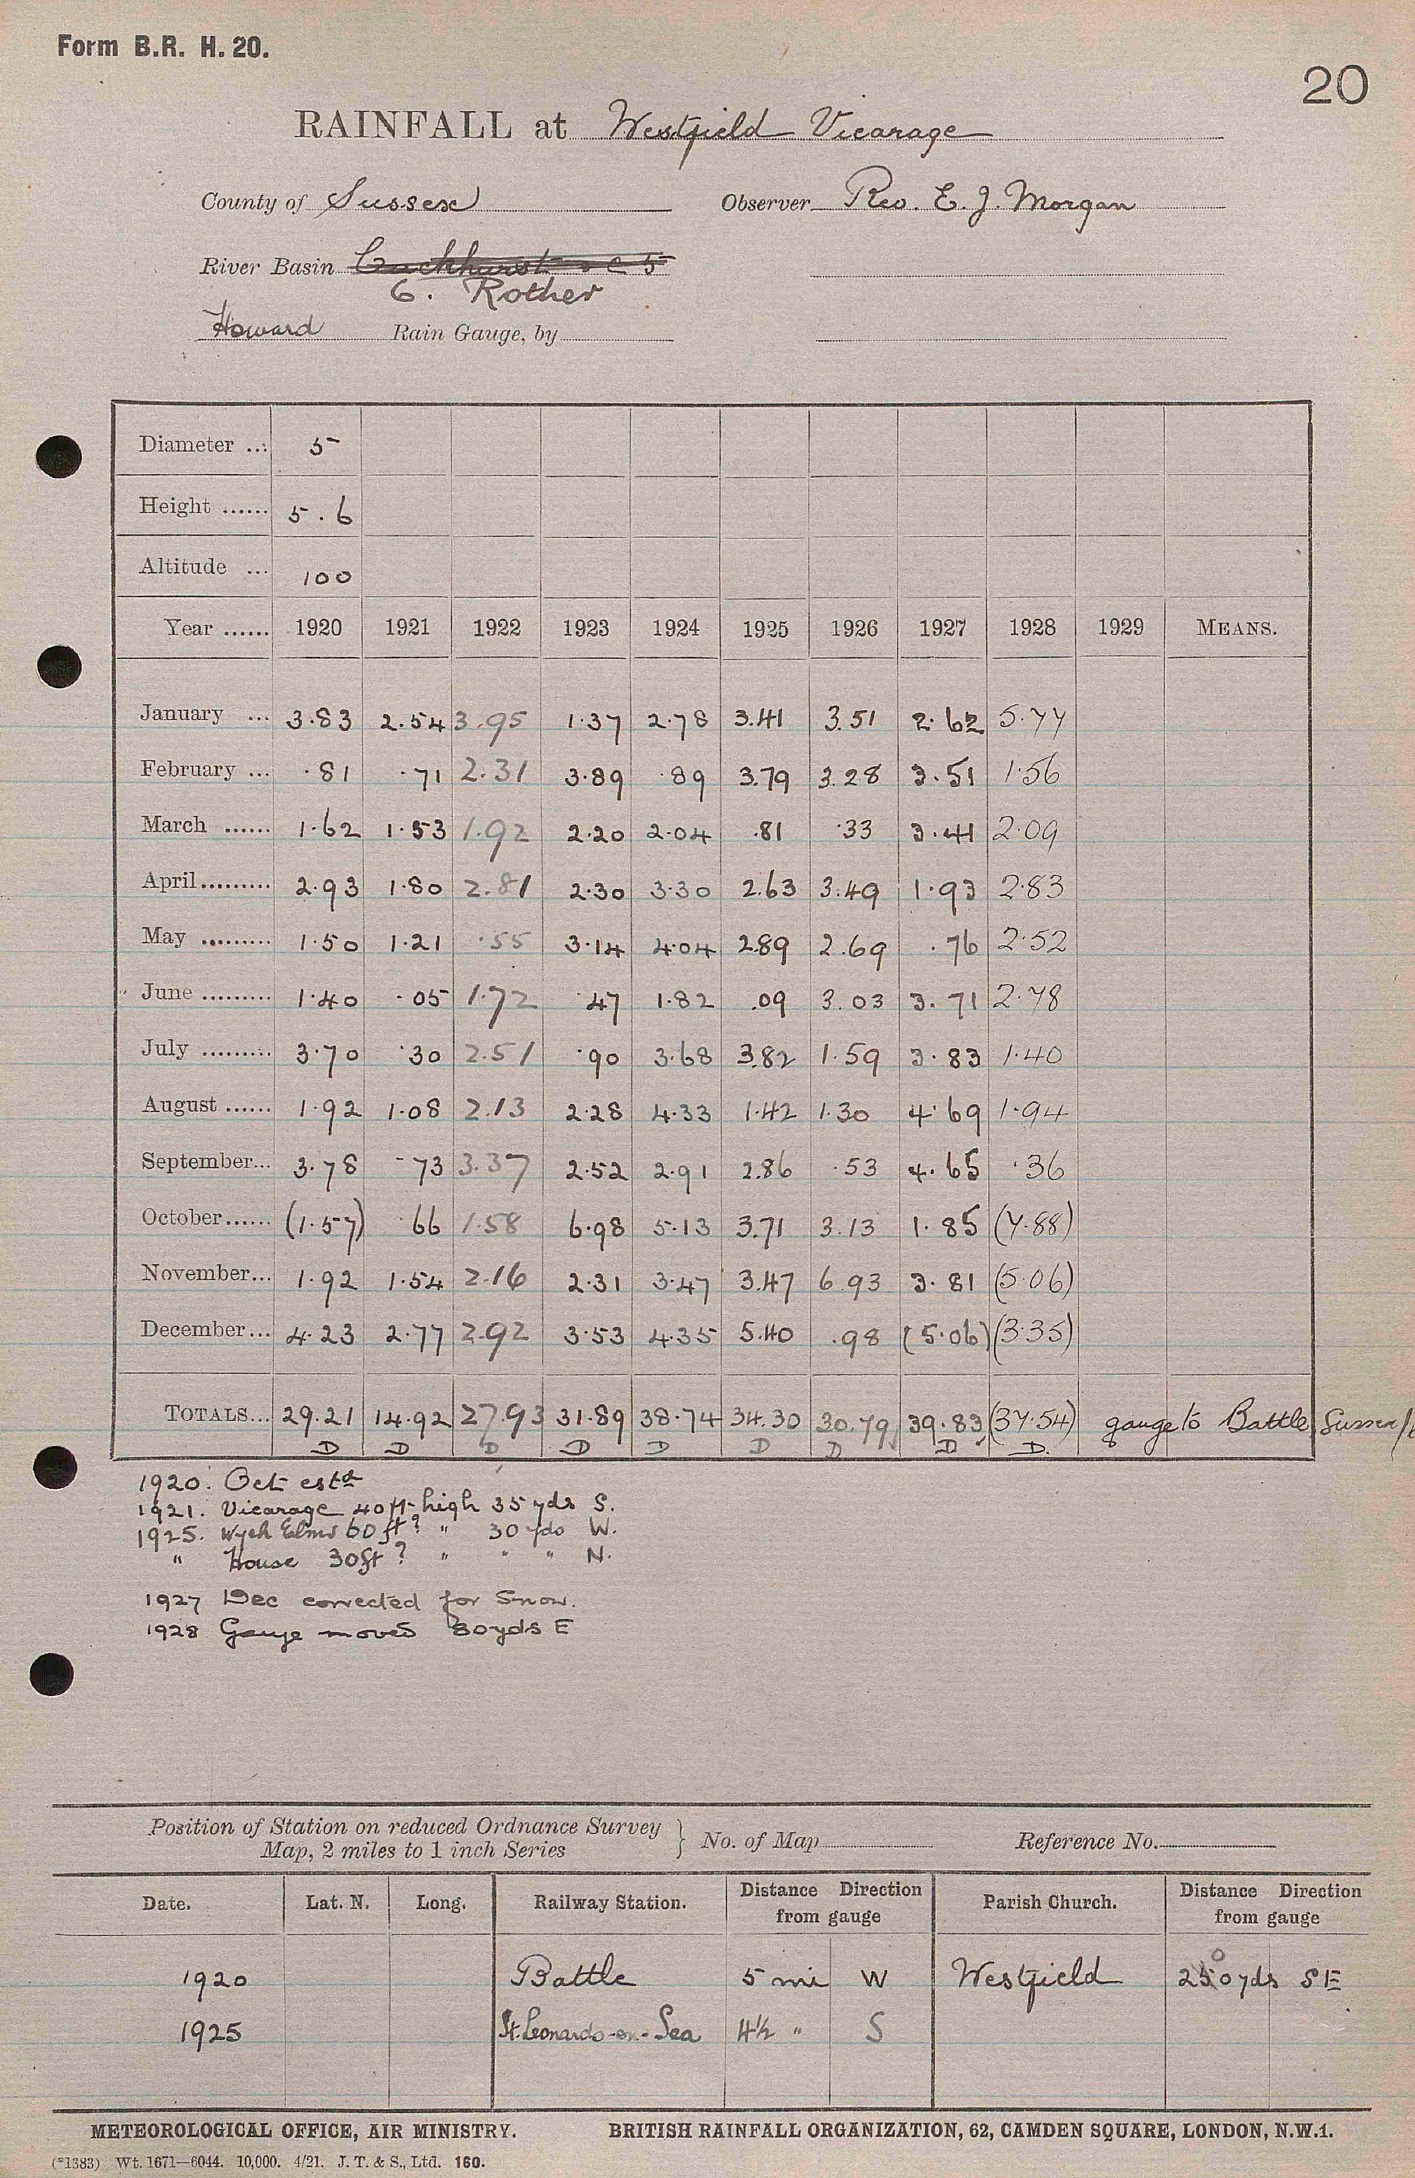 Form B.R. H. 20.
20
RAINFALL at Westfield Vicarage
County of Sussex Observer Rev. E. J. Morgan
River Basin
6. Rother
Howard Rain Gauge, by
Diameter ... 5
Height ...... 5.6
Altitude ... 100
Year ...... 1920 1921 1922 1923 1924 1925 1926 1927 1928 1929 MEANS.
January ... 3.83 2.54 3.95 1.37 2.78 3.41 3.51 2.62 5.77
February ... .81 .71 2.31 3.89 .89 3.79 3.28 3.51 1.56
March ...... 1.62 1.53 1.92 2.20 2.04 .81 .33 3.41 2.09
April......... 2.93 1.80 2.81 2.30 3.30 2.63 3.49 1.93 2.83
May ......... 1.50 1.21 .55 3.14 4.04 2.89 2.69 .76 2.52
June ......... 1.40 .05 1.72 .47 1.82 .09 3.03 3.71 2.78
July ......... 3.70 .30 2.51 .90 3.68 3.82 1.59 3.83 1.40
August ...... 1.92 1.08 2.13 2.28 4.33 1.42 1.30 4.69 1.94
September... 3.78 .73 3.37 2.52 2.91 2.86 .53 4.65 .36
October...... (1.57) .66 1.58 6.98 5.13 3.71 3.13 1.85 (7.88)
November... 1.92 1.54 2.16 2.31 3.47 3.47 6.93 3.81 (5.06)
December... 4.23 2.77 2.92 3.53 4.35 5.40 .98 (5.06) (3.35)
TOTALS... 29.21 14.92 27.93 31.89 38.74 34.30 30.79 39.83 (37.54) gauge to Battle, Sussex
D D D D D D D D D.
1920. Oct estd
1921. Vicarage 40 ft high 35 yds S.
1925. Wych Elms 60 ft? " 30 yds W.
" House 30 ft? " " " N.
1927 Dec corrected for Snow.
1928 Gauge moved 80 yds E
Position of Station on reduced Ordnance Survey
Map, 2 miles to 1 inch Series } No. of Map Reference No.
Date. Lat. N. Long. Railway Station. Distance Direction from gauge Parish Church. Distance Direction from gauge
1920 Battle 5 mi W Westfield 200 yds SE
1925 St. Leonards-on-Sea 4½ " S
METEOROLOGICAL OFFICE, AIR MINISTRY. BRITISH RAINFALL ORGANIZATION, 62, CAMDEN SQUARE, LONDON, N.W.1.
(*1383) Wt. 1671—6044. 10,000. 4/21. J. T. & S., Ltd. 160.